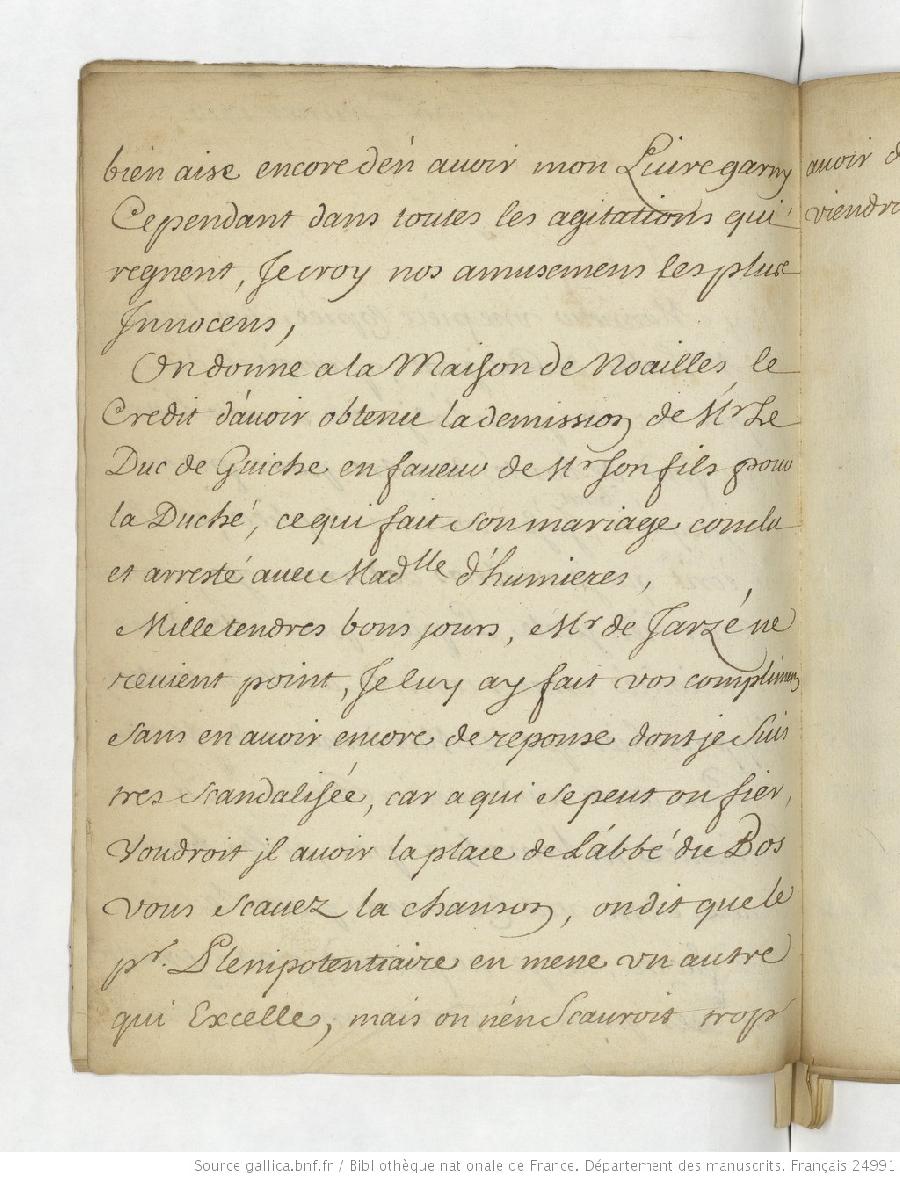 bien aise encore d'en auoir mon Liure garny
Cependant dans toutes les agitations qui
regnent, Je croy nos amusemens les plus
Innocens,
On donne a la Maison de Noailles, le
Credit d'auoir obtenu la demission de Mr Le
Duc de Guiche en faueur de Mr son fils pour
la Duché, ce qui fait son mariage conclu
et arresté auec Madlle d'humieres,
Mille tendres bons jours, Mr de Jarzé ne
reuient point, Je luy ay fait vos complimens
sans en auoir encore de reponse dont je suis
tres scandalisée, car a qui se peut on fier,
Voudroit jl auoir la place de L'abbé du Bos
vous scauez la chanson, on dit que le
pr. Plenipotentiaire en mene vn autre
qui Excelle, mais on n'en Scauroit trop
auoir
viendr
Source gallica.bnf.fr / Bibliothèque nationale de France. Département des manuscrits. Français 24991